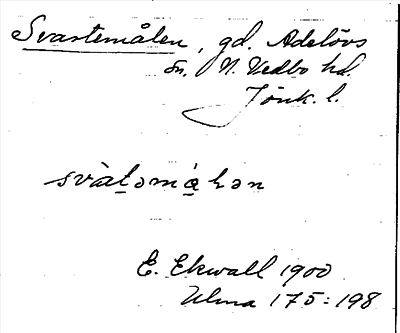 Svartemålen, gd. Adelövs
sn. N. Vedbo hd.
Jönk. l.
svàt̠əmá̠lən
E. Ekwall 1900
Ulma 175:198